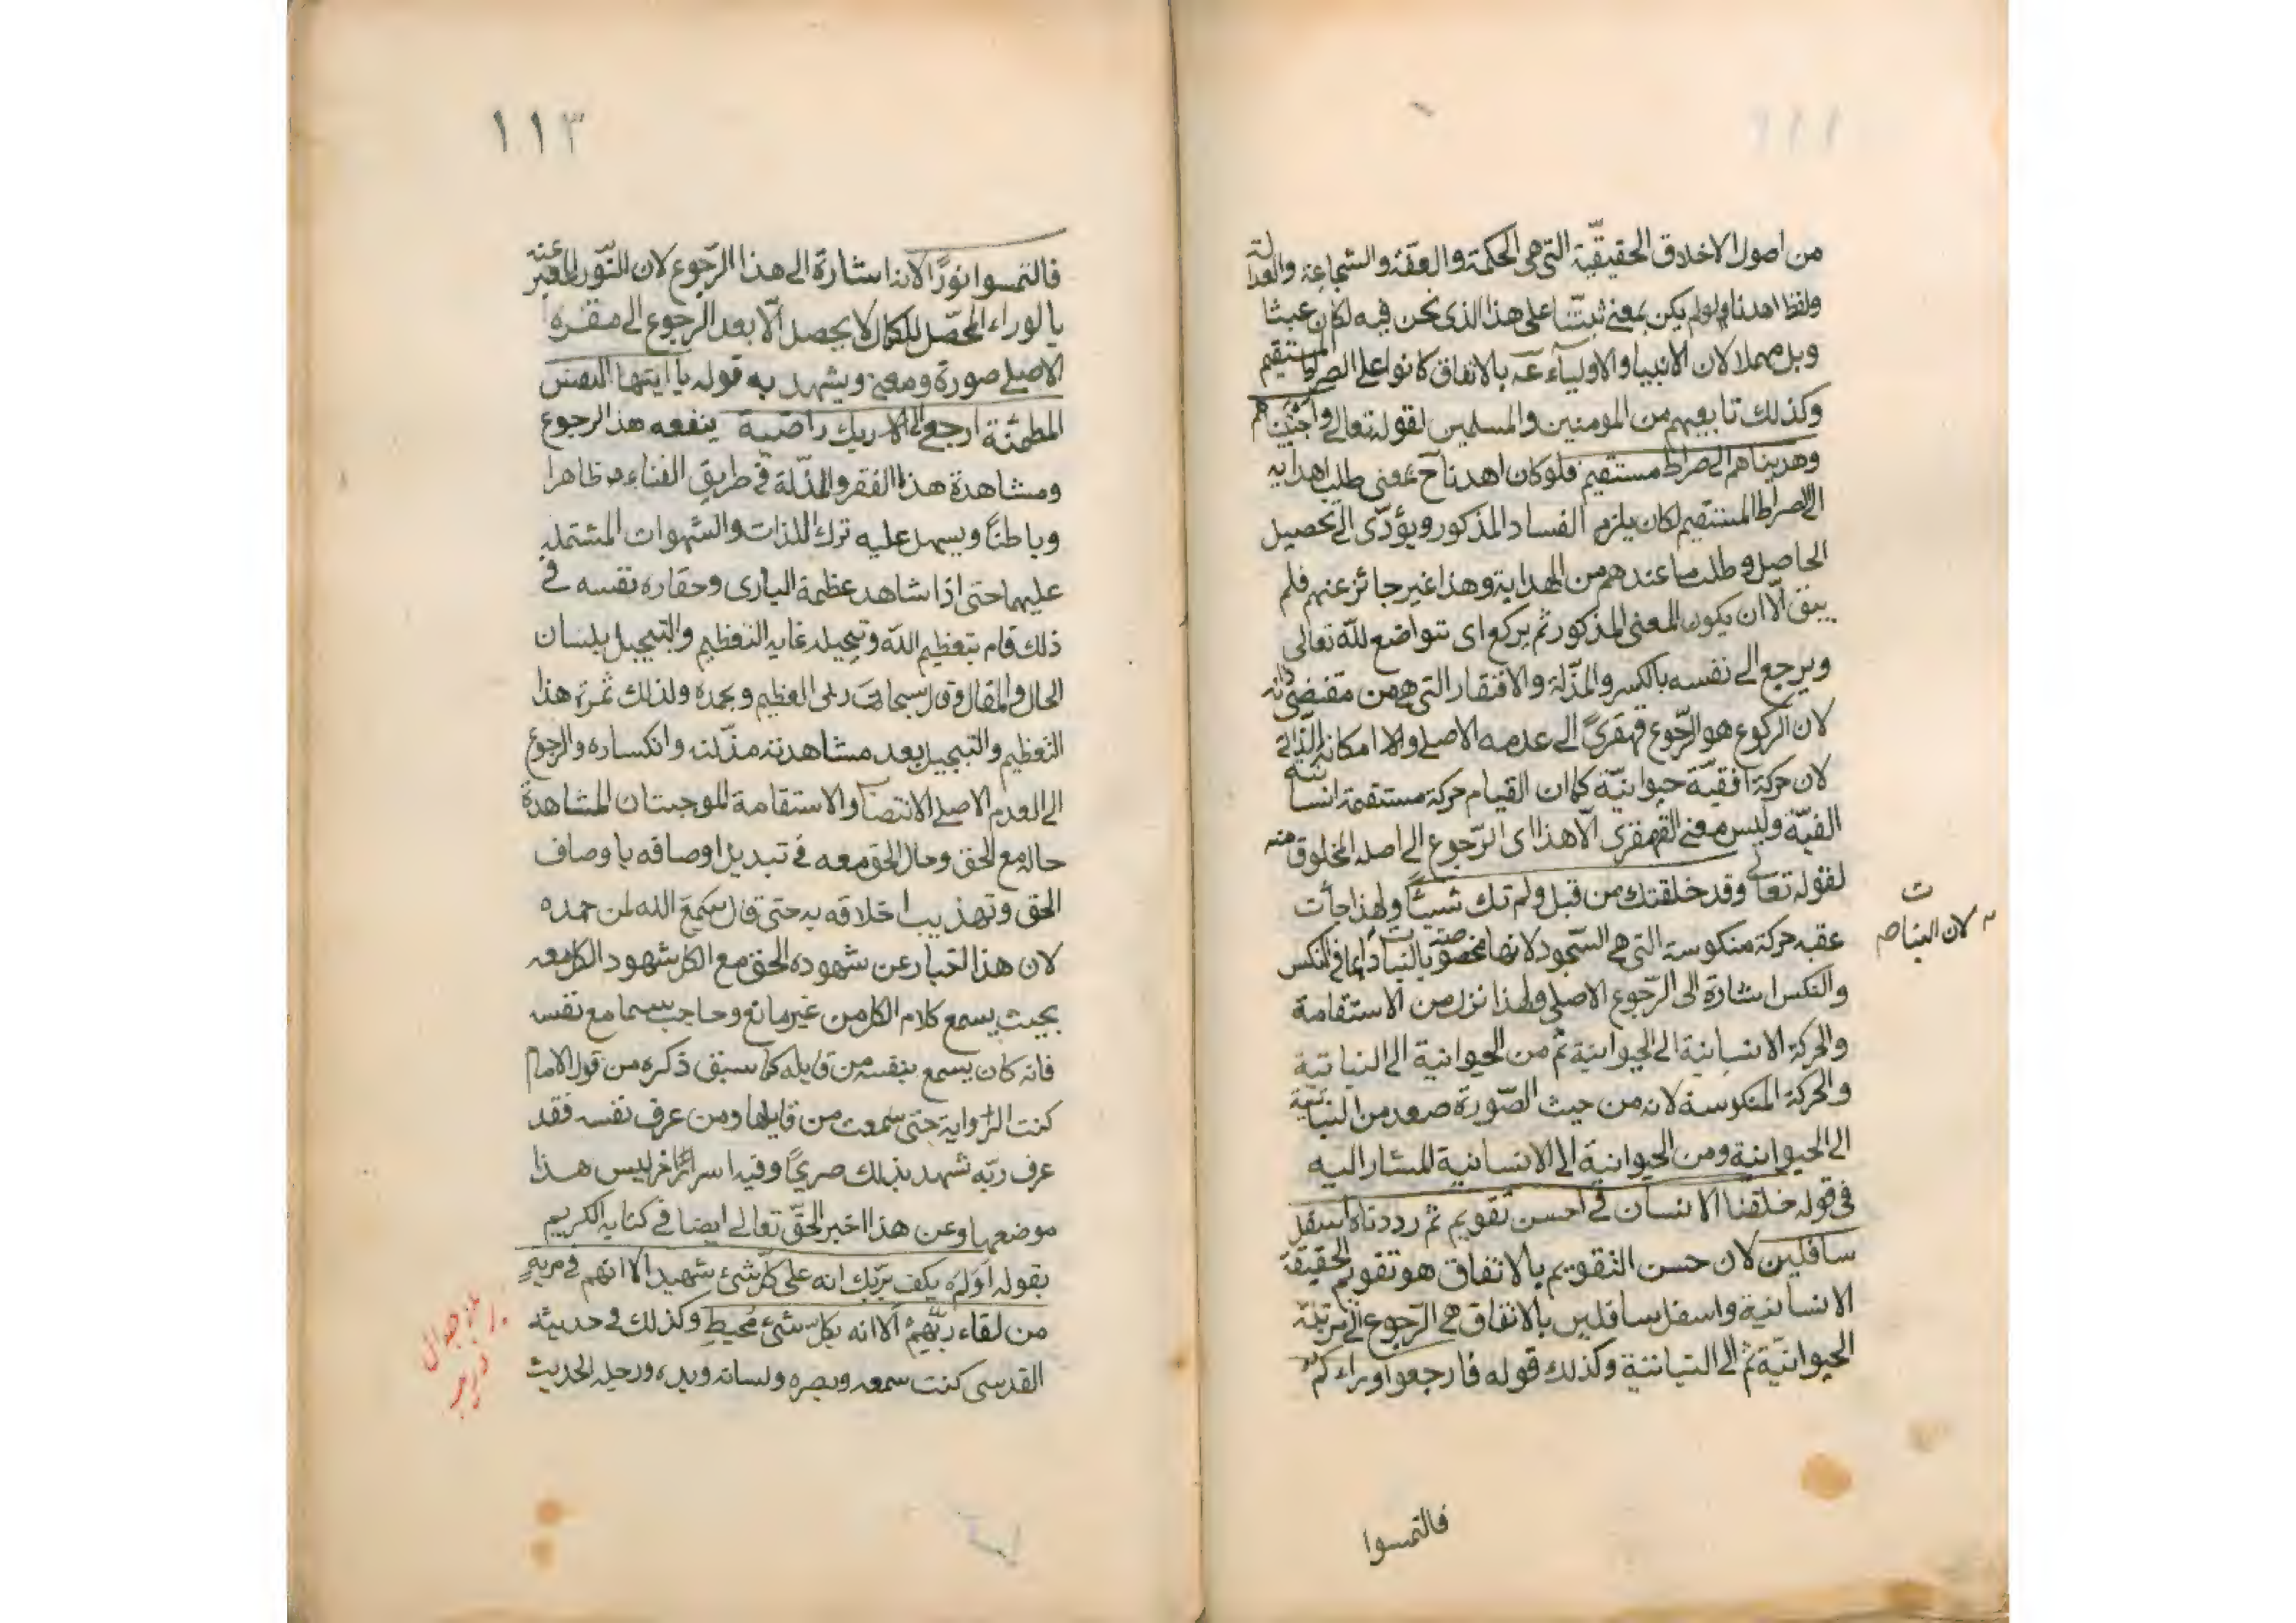 من اصول الاخلاق الحقيقيّة التى هى الحكمة والعفّة والشجاعة والعدالة
ولفظ اهدنا لولم يكن بمعنى ثبّتنا على هذا الذى نحن فيه لكان عبثا
وبل مهملا لان الانبيا والاولياء عم بالاتفاق كانوا على الصراط المستقيم
وكذلك تابعيهم من المومنين والمسلمين لقوله تعالى واجتبيناهم
وهديناهم الى صراط مستقيم فلوكان اهدنا ح بمعنى طلب اهدايه
الى الصراط المستقيم لكان يلزم الفساد المذكور ويؤدّى الى تحصيل
الحاصل وطلب ما عندهم من الهداية وهذا غير جائز عنهم فلم
يبق الّا ان يكون المعنى المذكور ثم يركع اى تتواضع للّه تعالى
ويرجع الى نفسه بالكسر والمذّلة والافتقار التى هى من مقتضى ذاته
لان الركوع هو الرّجوع قهقرىً الى عدمه الاصلى والا امكانه الذّاتى
لان حركة افقيّة حيوانيّة كما ان القيام حركة مستقيمة انسانية
الفيّة وليس معنى القهقرى الّا هذا اى الرّجوع الى اصله المخلوق منه
لقوله تعالى وقد خلقتك من قبل ولم تك شيئًا ولهذا جأت
عقبه حركة منكوسة التى هى السّجود لانها مخصوصة بالنبات دايما فى النكس
والنكس اشارة الى الرّجوع الاصلى ولهذا نزل من الاستقامة
والحركة الانسانية الى الحيوانية ثم من الحيوانية الى النباتية
والحركة المنكوسة لانه من حيث الصّورة صعد من النباتية
الى الحيوانية ومن الحيوانية الى الانسانية المشار اليه
فى قوله خلقنا الانسان فى احسن تقويم ثم رددناه اسفل
سافلين لان حسن التقويم بالاتفاق هو تقويم الحقيقة
الانسانية واسفل سافلين بالاتفاق هى الرّجوع الى مرتبة
الحيوانيّة ثم الى النباتية وكذلك قوله فارجعوا وراءكم
فالتمسوا
ت
لان النبات
١١٣
فالتمسوا نورًا لانه اشارة الى هذا الرّجوع لان النّور المعبّر عنه
بالوراء المحصّل للكمال لا يحصل الّا بعد الرجوع الى مقره
الاصلى صورة ومعنى ويشهد به قوله يا ايتها النفس
المطمئنة ارجعى الى ربك راضية ينفعه هذا الرجوع
ومشاهدة هذا الفقر والمذّلة فى طريق الفناء ظاهرا
وباطنًا ويسهل عليه ترك اللذات والشهوات المشتمله
عليهما حتى اذا شاهد عظمة البارى وحقاره نفسه فى
ذلك قام بتعظيم اللّه وتبجيله غاية التعظيم والتبجيل بلسان
الحال والمقال وقال سبحان ربى العظيم وبحمده ولذلك ثمرة هذا
التعظيم والتبجيل بعد مشاهدته مذلته وانكساره والرجوع
الى العدم الاصلى الانتصاب والاستقامة الموجبتان المشاهدة
حاله مع الحق وحال الحق معه فى تبديل اوصافه باوصاف
الحق وتهذيب اخلاقه به حتى قال سمع الله لمن حمده
لان هذا اخبار عن شهوده الحق مع الكل شهود الكل معه
بحيث يسمع كلام الكل من غير مانع وحاجب سيما مع نفسه
فانه كان يسمع بنفسه من قايله كما سبق ذكره من قول الامام
كنت الرواية حتى سمعت من قايلها ومن عرف نفسه فقد
عرف ربّه شهد بذلك صريحًا وفيه اسرار اخر ليس هذا
موضعها وعن هذا اخبر الحقّ تعالى ايضا فى كتابه الكريم
بقوله اولم يكف بربّك انه على كلّ شئ شهيد الا انهم فى مريةٍ
من لقاء ربّهم الا انه بكلّ شئ محيط وكذلك فى حديثه
القدسى كنت سمعه وبصره ولسانه ويده ورجله الحديث